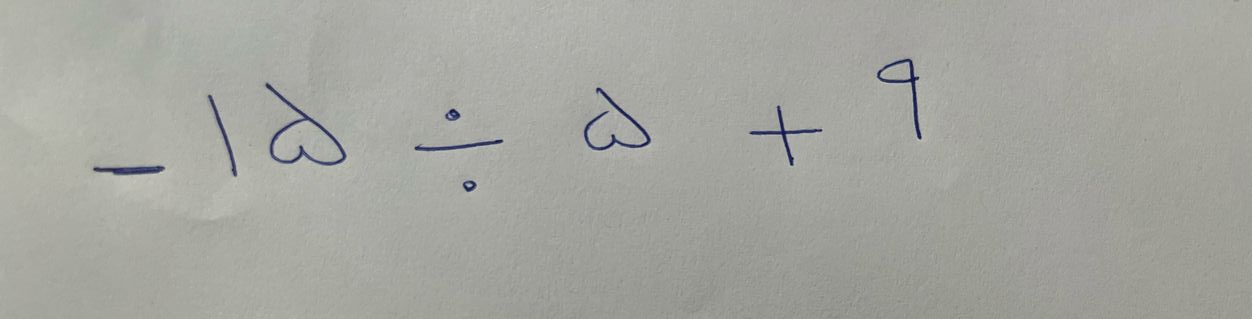 -۱۵ ÷ ۵ + ۹